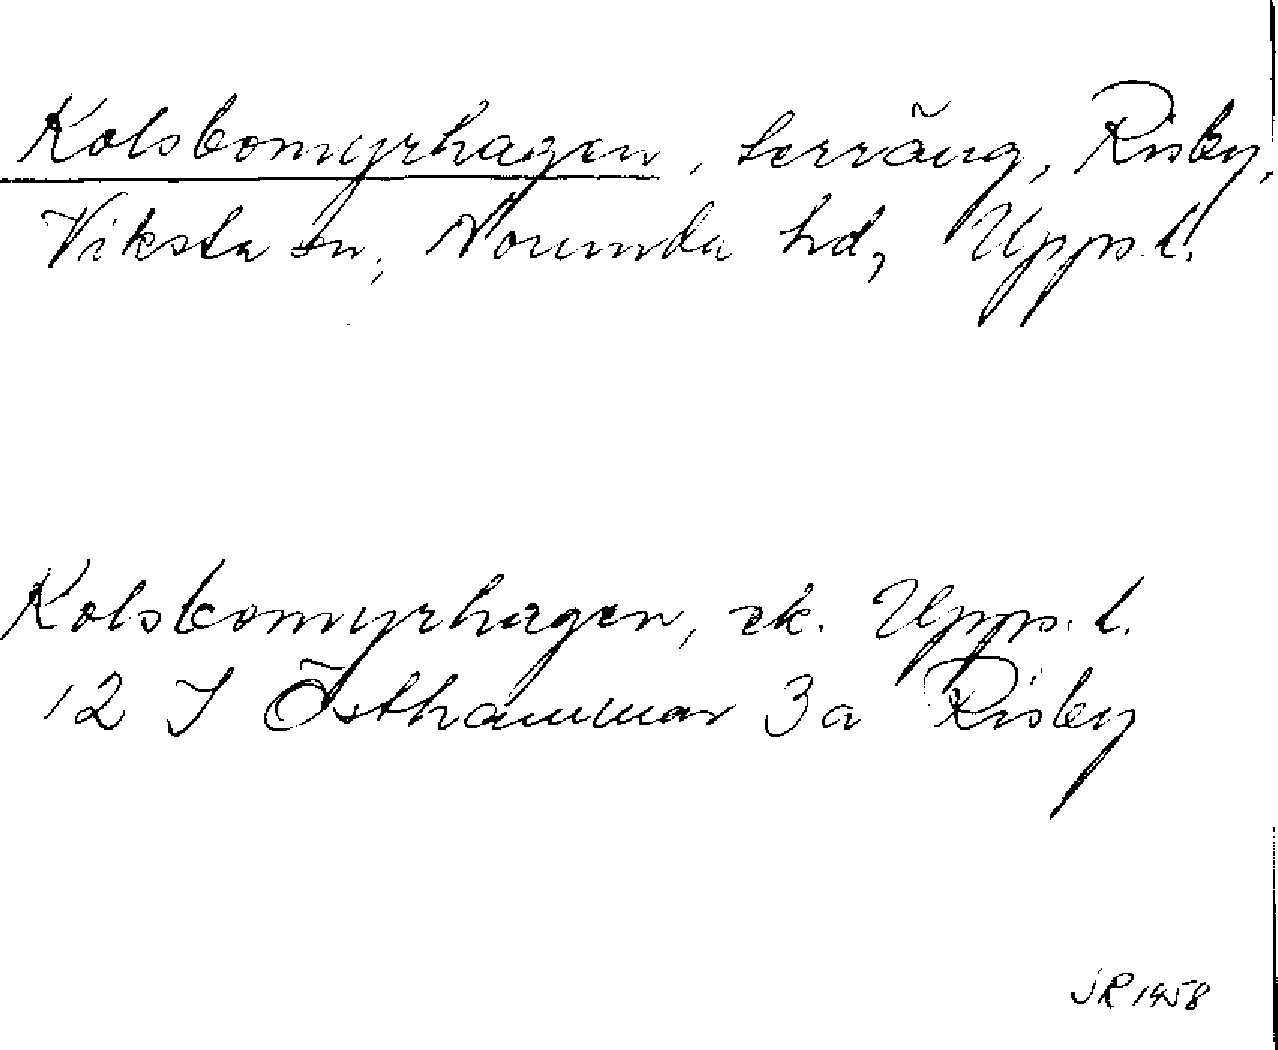 Kolsbomyrhagen, terräng, Risby,
Viksta sn, Norunda hd, Upps.l.
Kolsbomyrhagen, ek. Upps.l.
12 I Östhammar 3a Risby
JR 1958